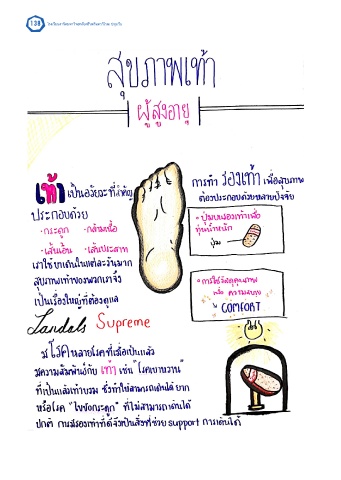 138
สุขภาพเท้า
ผู้สูงอายุ
เท้า เป็นอวัยวะที่สำคัญ
ประกอบด้วย
-กระดูก -กล้ามเนื้อ
-เส้นเอ็น -เส้นประสาท
เราใช้ เดินในแต่ละวันมาก
สุขภาพเท้าของพวกเราจึง
เป็นเรื่องใหญ่ที่ต้องดูแล
การทำ รองเท้า เพื่อสุขภาพ
ต้องประกอบด้วยหลายปัจจัย
รองเท้าเพื่อ
น้ำหนัก
ปุ่ม
COMFORT
Sandals Supreme
มีโรคหลายโรคที่เมื่อเป็นแล้ว
มีความสัมพันธ์กับ เท้า เช่น "โรคเบาหวาน"
ที่เป็นแผลเท้าบวม ซึ่งทำให้สามารถเดินได้ยาก
หรือโรค "ไขข้อกระดูก" ที่ไม่สามารถเดินได้
ปกติ การมีรองเท้าที่ดีจึงเป็นสิ่งที่ช่วย support การเดินได้